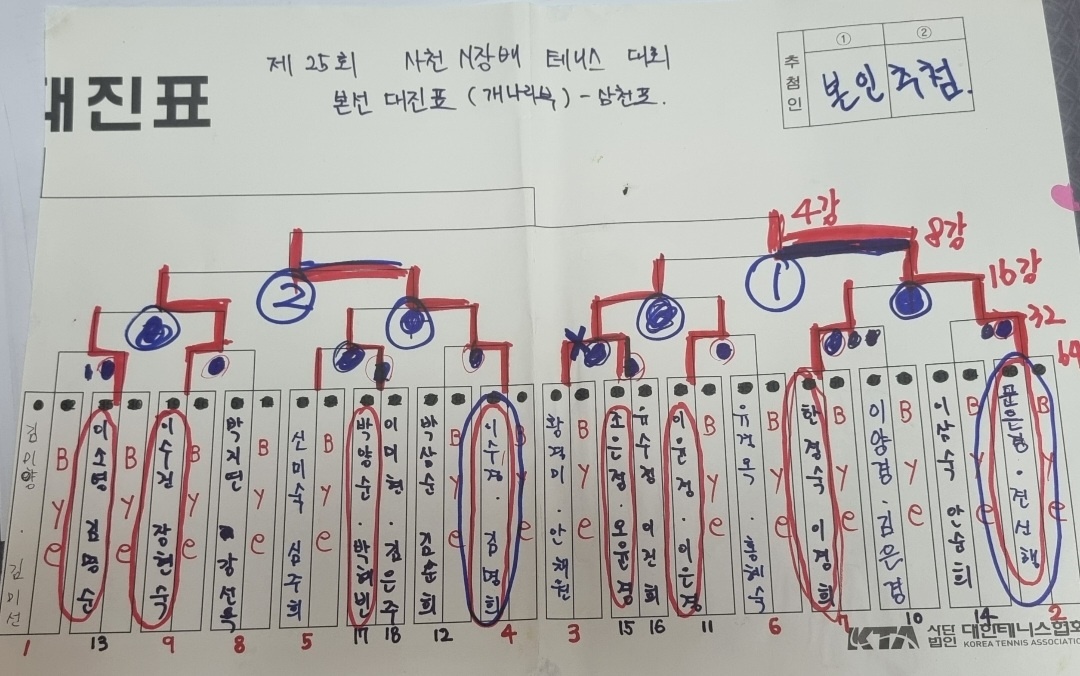 대진표
제 25회 사천시장배 테니스 대회
본선 대진표 (개나리부) - 삼천포.
추첨인
① ②
본인 추첨.
4강
8강
16강
32
64
② ①
김미량 · 김미선
Bye
이소영 김명순
Bye
이수진 장현숙
Bye
박지연 강선옥
Bye
신미숙 심주희
Bye
박양순 · 박혜빈
이미현 · 김은주
박삼순 김순희
Bye
이수경 · 김명희
Bye
황경미 · 안채원
Bye
조은정 · 오윤경
유수정 이진희
이윤정 · 이은경
Bye
유건옥 · 홍혜숙
Bye
한경숙 이경희
Bye
이양경 · 김은경
Bye
이삼숙 안승희
Bye
문은경 · 전신해
Bye
1 13 9 8 5 17 18 12 4 3 15 16 11 6 7 10 14 2
KTA 사단법인 대한테니스협회
KOREA TENNIS ASSOCIATION